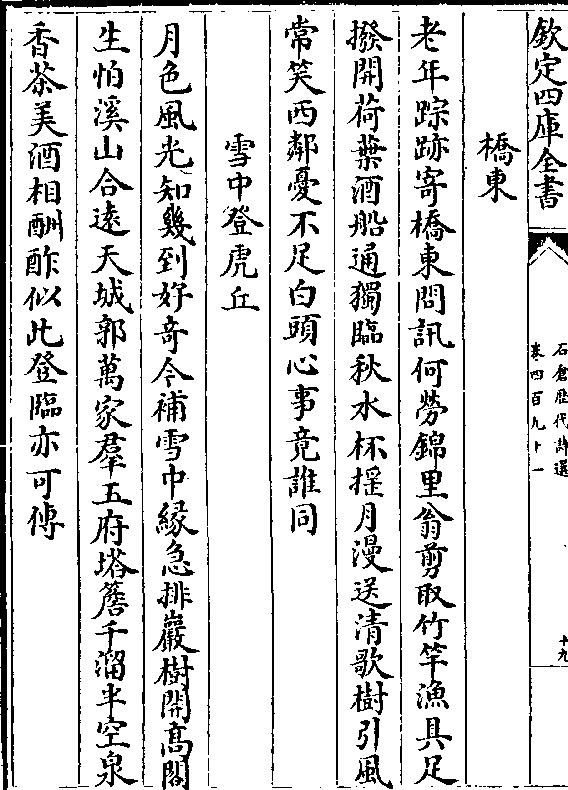 欽定四庫全書
石倉歷代詩選
卷四百九十一
十九
橋東
老年踪跡寄橋東問訊何勞錦里翁剪取竹竿漁具足
撥開荷葉酒船通獨臨秋水杯摇月漫送清歌樹引風
常笑西鄰憂不足白頭心事竟誰同
雪中登虎丘
月色風光知幾到好奇今補雪中緣急排巖樹開高閣
生怕溪山合遠天城郭萬家羣玉府塔簷千溜半空泉
香茶美酒相酬酢似此登臨亦可傳